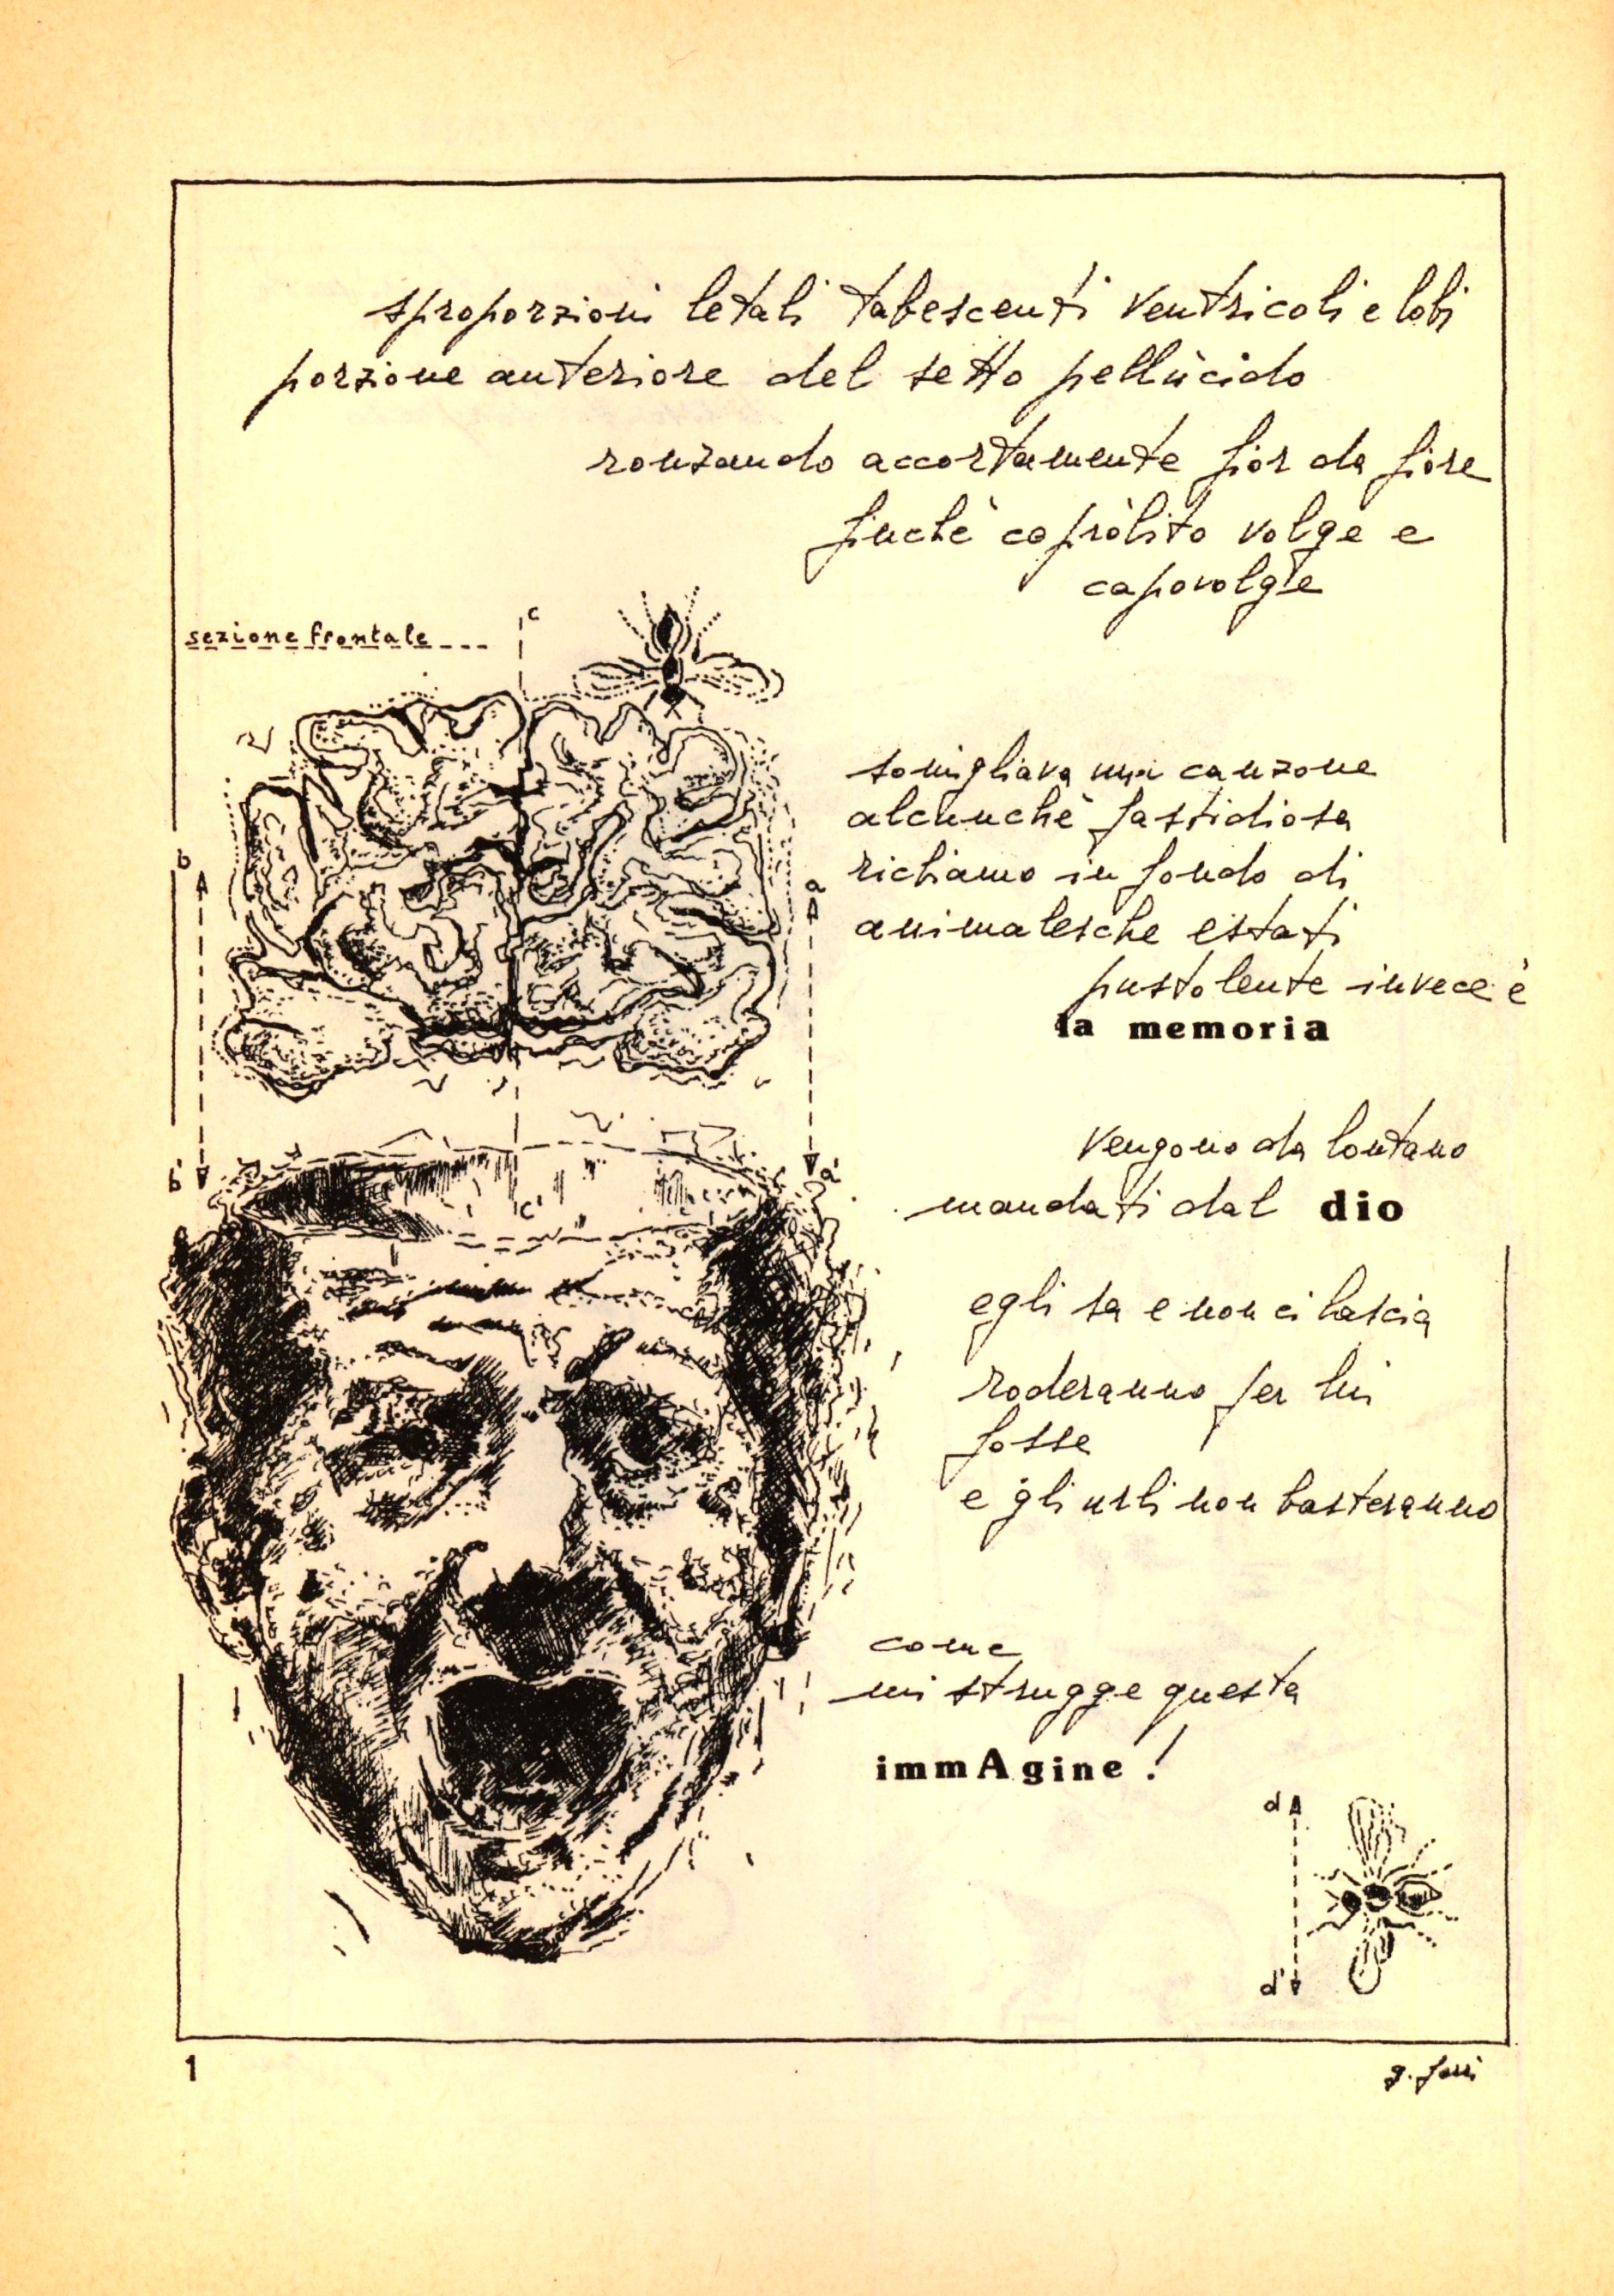 sproporzioni letali tabescenti ventricoli e lobi
porzione anteriore del setto pellùcido
ronzando accortamente fior da fiore
finchè copròlito volge e
capovolge
sezione frontale
c
somigliava una canzone
alcunchè fastidiosa
b
a
richiamo in fondo di
animalesche estati
pustolente invece è
la memoria
vengono da lontano
b'
a'
mandati dal dio
c'
egli sa e non ci lascia
roderanno per lui
fosse
e gli urli non basteranno
come
mi strugge questa
immAgine!
d
d'
1
g.